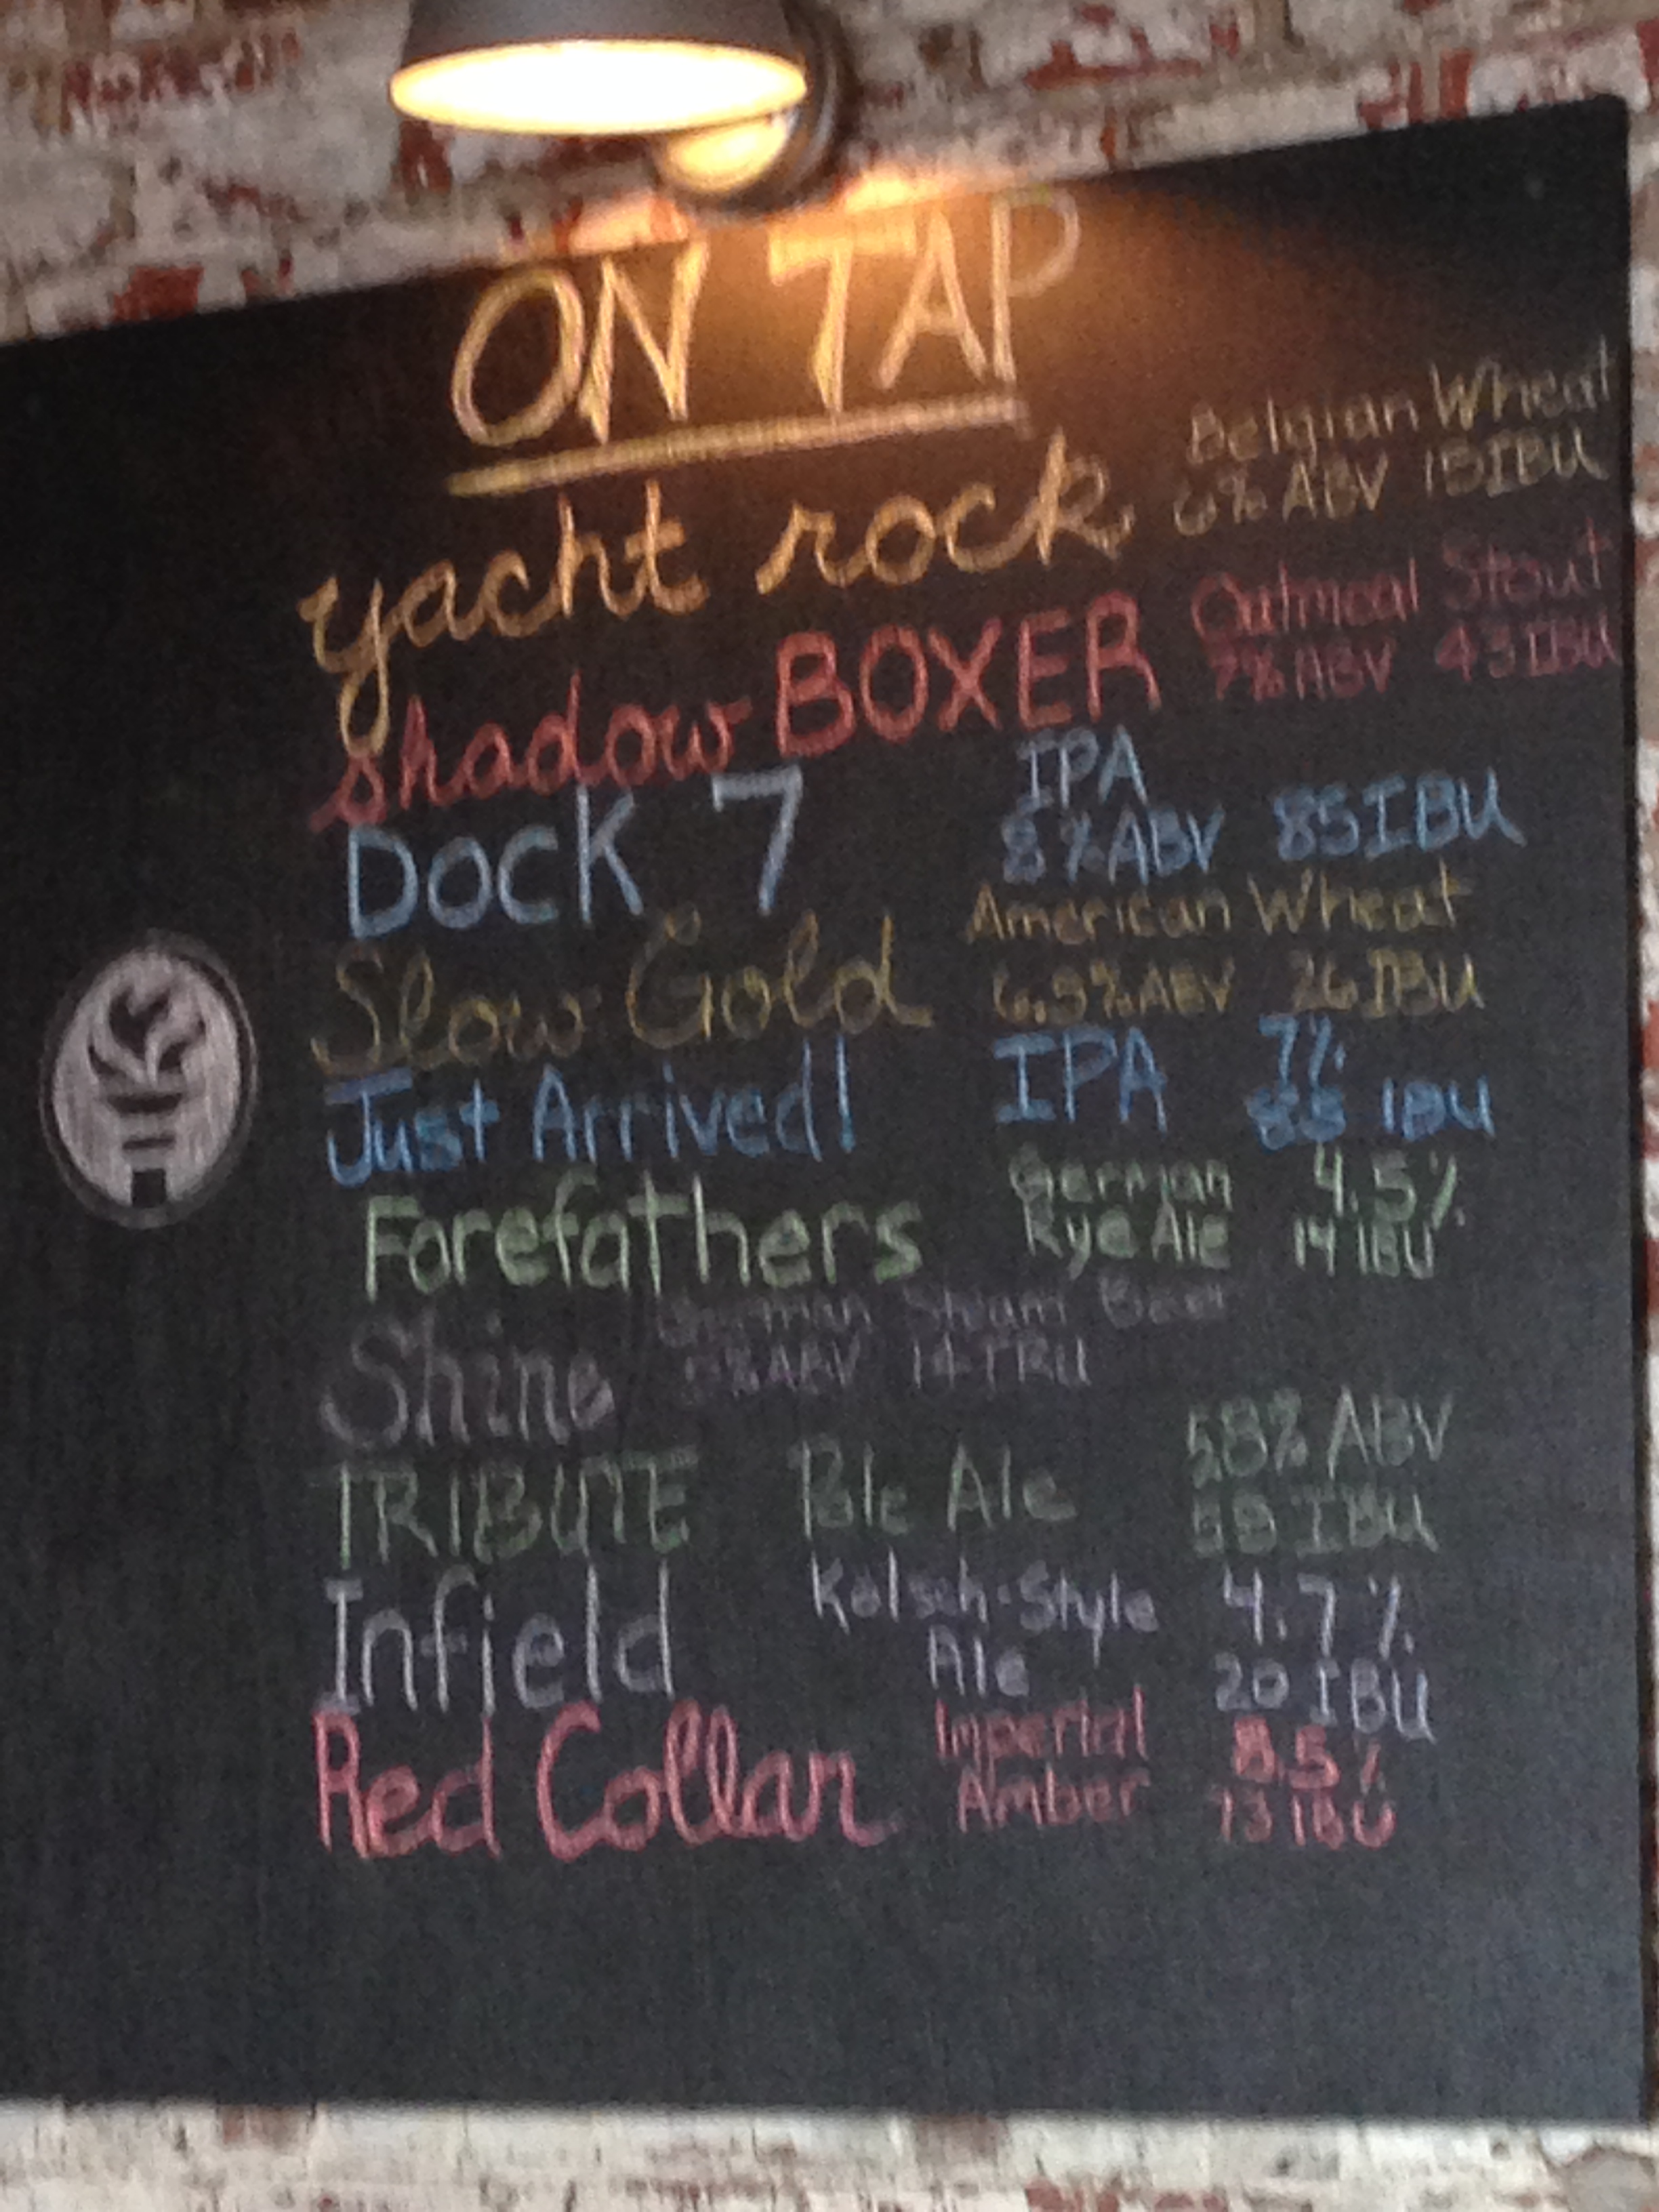 ON TAP
yacht rock Belgian Wheat
6% ABV 15 IBU
shadow BOXER Oatmeal Stout
7% ABV 43 IBU
DOCK 7 IPA
8% ABV 85 IBU
Slow Gold American Wheat
6.5% ABV 26 IBU
Just Arrived! IPA 7%
IBU
Forefathers German 4.5%
Rye Ale 14 IBU
Shine German Steam Beer
5% ABV 14 IBU
TRIBUTE Pale Ale 5.8% ABV
55 IBU
Infield Kolsch-Style 4.7%
Ale 20 IBU
Red Collar Imperial 8.5%
Amber 73 IBU